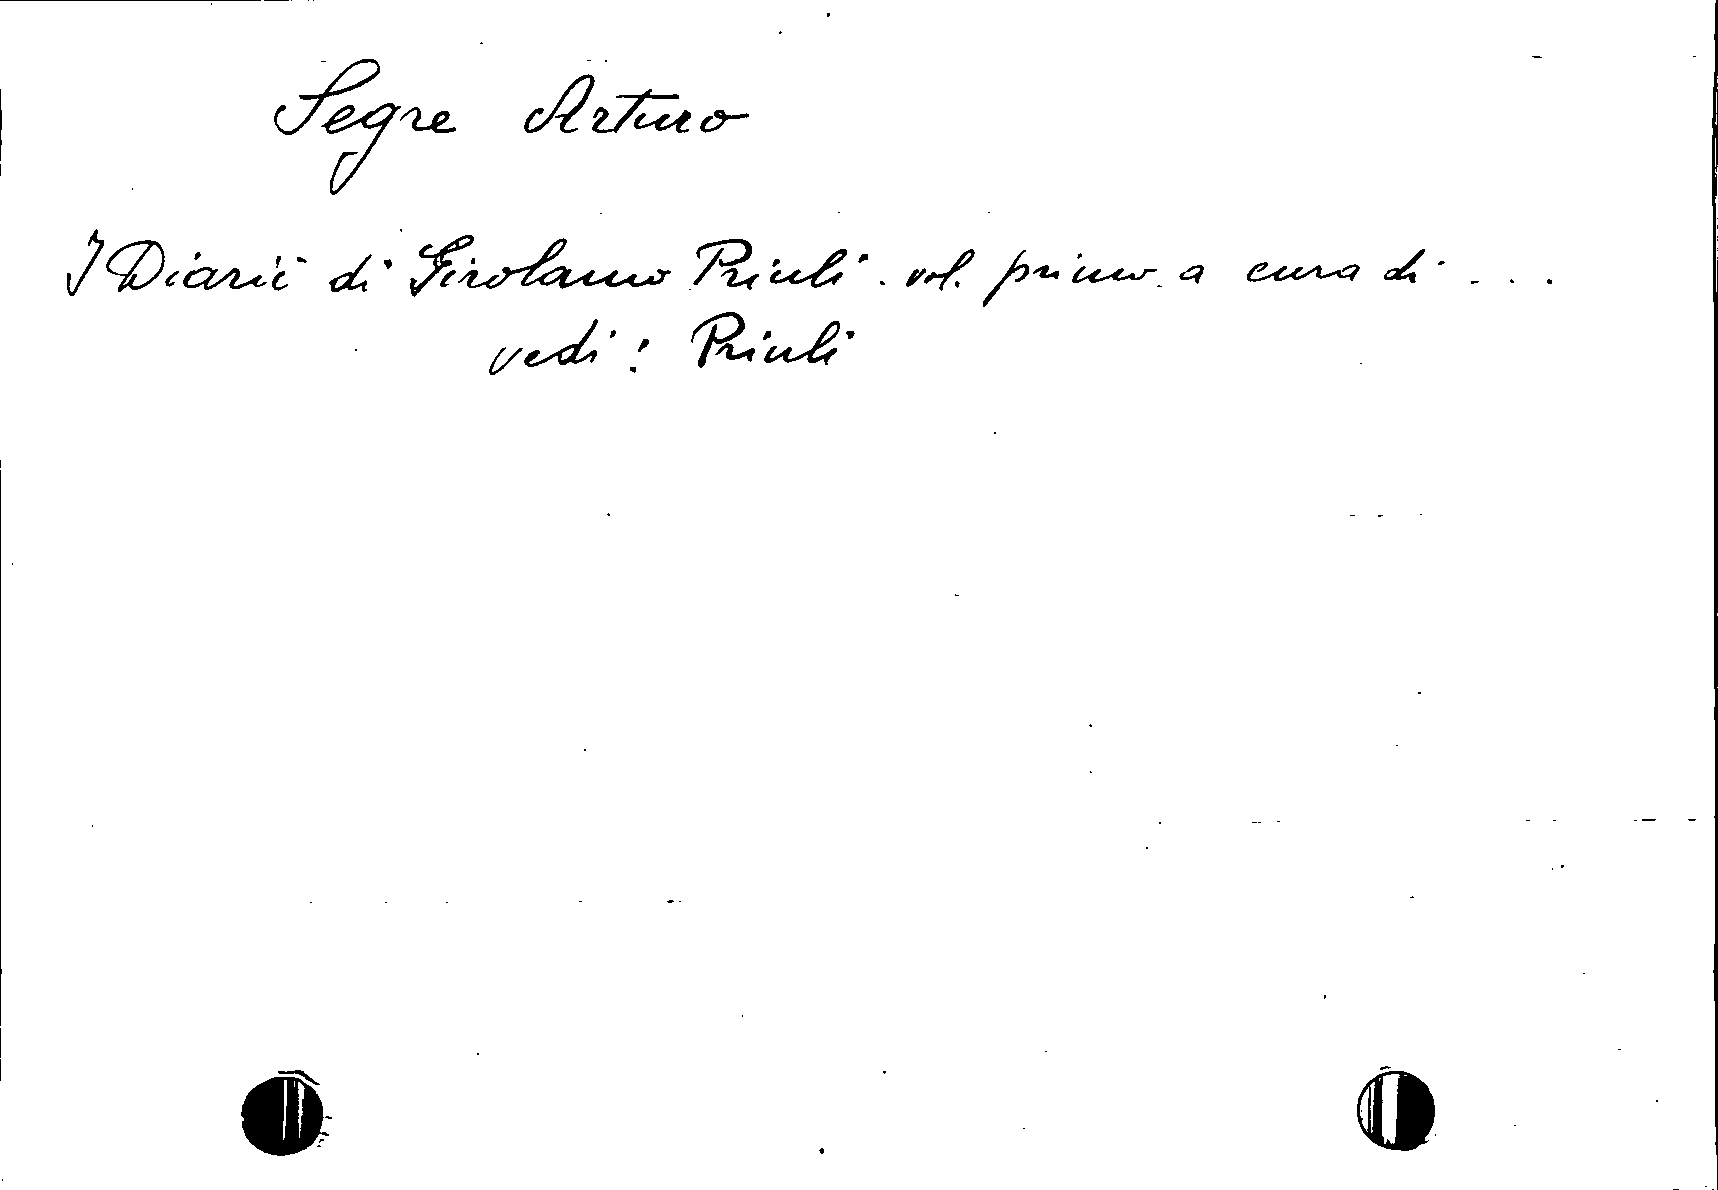 Segre Arturo
I Diarii di Girolamo Priuli. vol. primo a cura di ...
vedi: Priuli